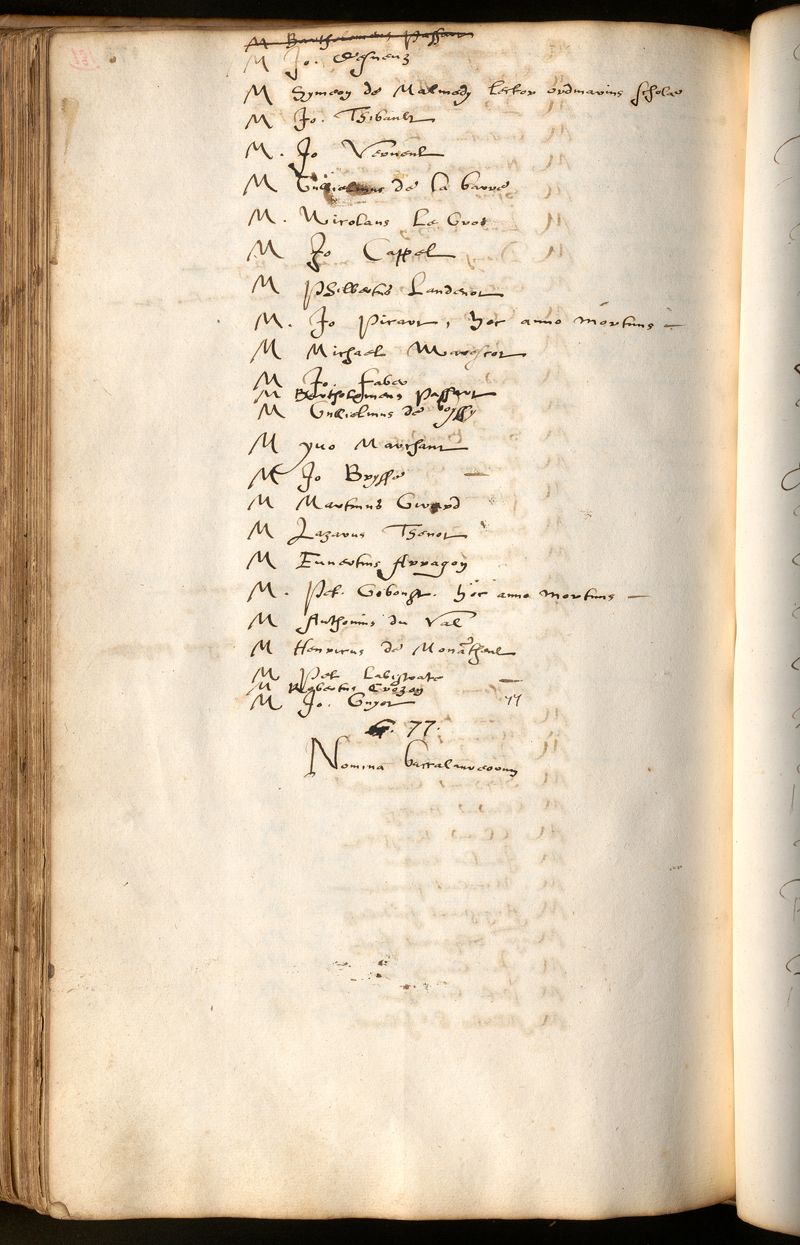 M Bartholomeus Passart
M Jo. Quenez
M Symeon de Malmedy lector ordinarius scholae
M Jo. Thibault
M. Jo Verneul
M Guilielmus de la barre
M. Nicolaus Le Gros
M Jo Cappel
M Philbertus Landenot
M. Jo Picart, hoc anno mortuus —
M Michael Marescot
M Jo. Faber
M Bartholomeus Passart
M Guilielmus de
M yvo Marchant
M Jo Bryssé
M Martinus Girard
M Lazarus Thenot
M Eunertius Arragon
M. Pet. Gobougt. hoc anno mortuus —
M Anthonius du Val
M Henricus de Monatheul
M Pet Labigoate
M Robertus Crozon
M Jo. Guyot 77
77.
Nomina baccalaureorum